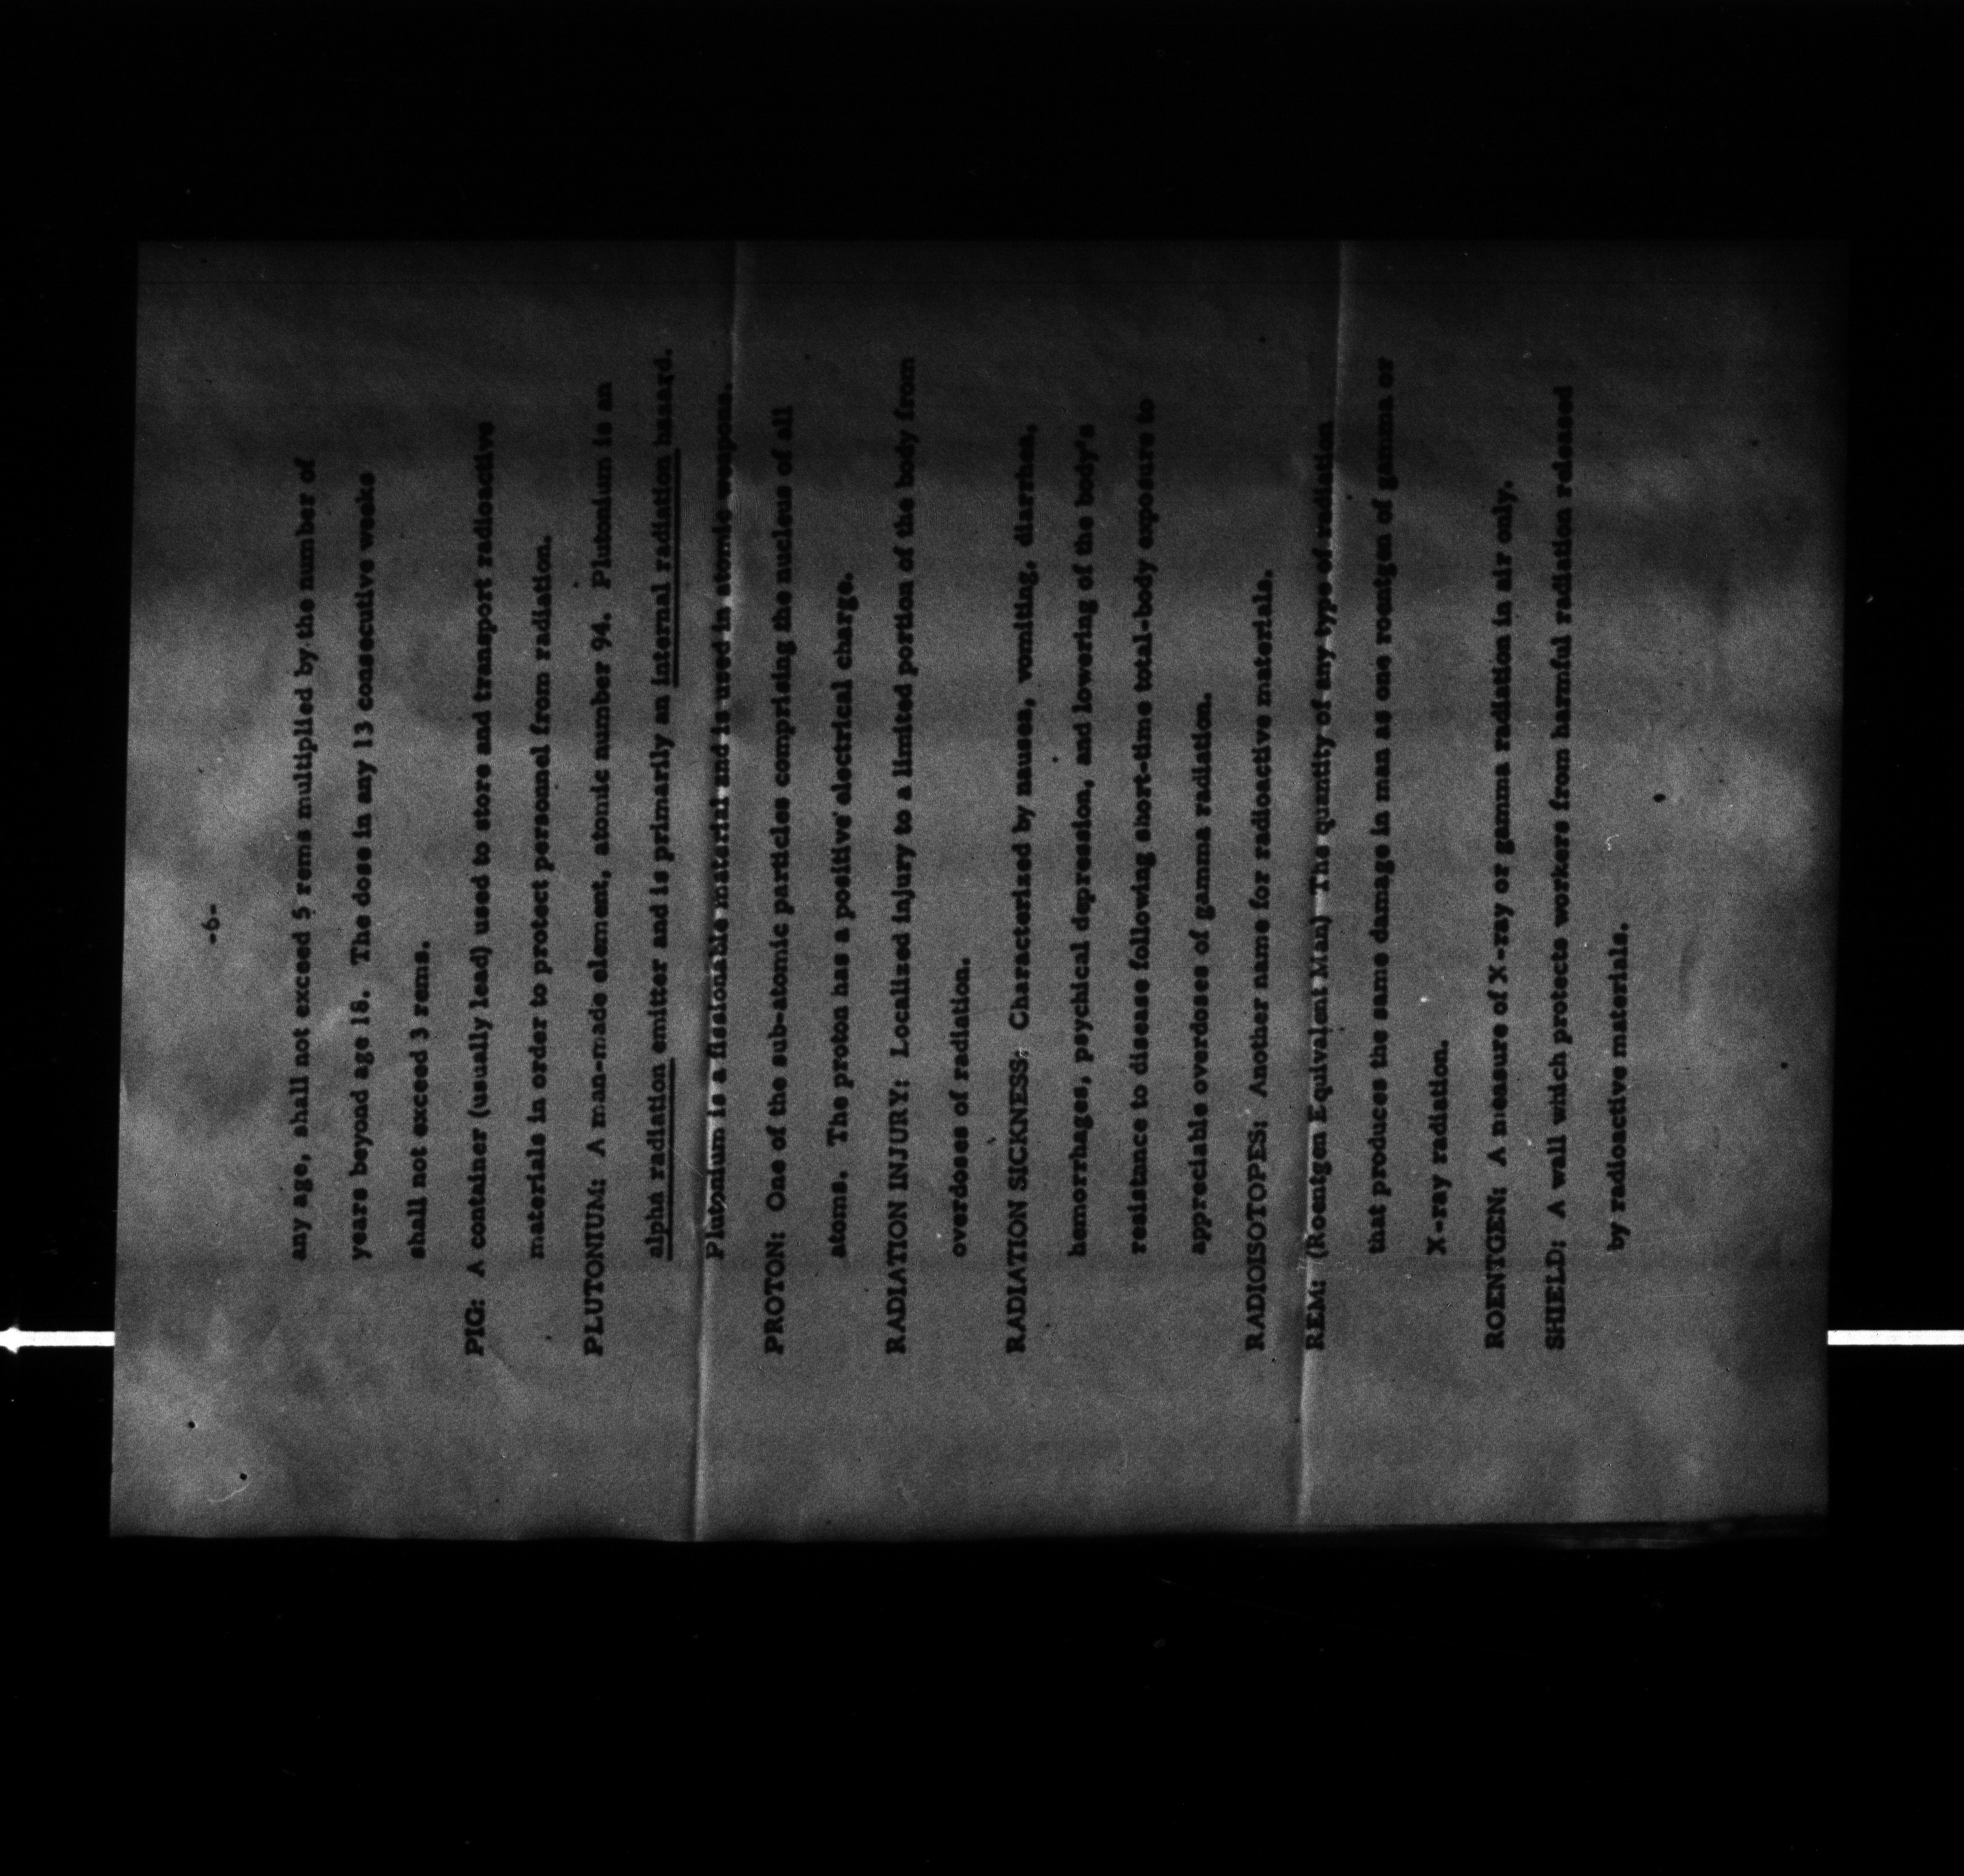 -6-
any age, shall not exceed 5 rems multiplied by the number of
years beyond age 18. The dose in any 13 consecutive weeks
shall not exceed 3 rems.
PIG: A container (usually lead) used to store and transport radioactive
materials in order to protect personnel from radiation.
PLUTONIUM: A man-made element, atomic number 94. Plutonium is an
alpha radiation emitter and is primarily an internal radiation hazard.
Plutonium is a fissionable material and is used in atomic weapons.
PROTON: One of the sub-atomic particles comprising the nucleus of all
atoms. The proton has a positive electrical charge.
RADIATION INJURY: Localized injury to a limited portion of the body from
overdoses of radiation.
RADIATION SICKNESS: Characterized by nausea, vomiting, diarrhea,
hemorrhages, psychical depression, and lowering of the body's
resistance to disease following short-time total-body exposure to
appreciable overdoses of gamma radiation.
RADIOISOTOPES: Another name for radioactive materials.
REM: (Roentgen Equivalent Man) The quantity of any type of radiation
that produces the same damage in man as one roentgen of gamma or
X-ray radiation.
ROENTGEN: A measure of X-ray or gamma radiation in air only.
SHIELD: A wall which protects workers from harmful radiation released
by radioactive materials.